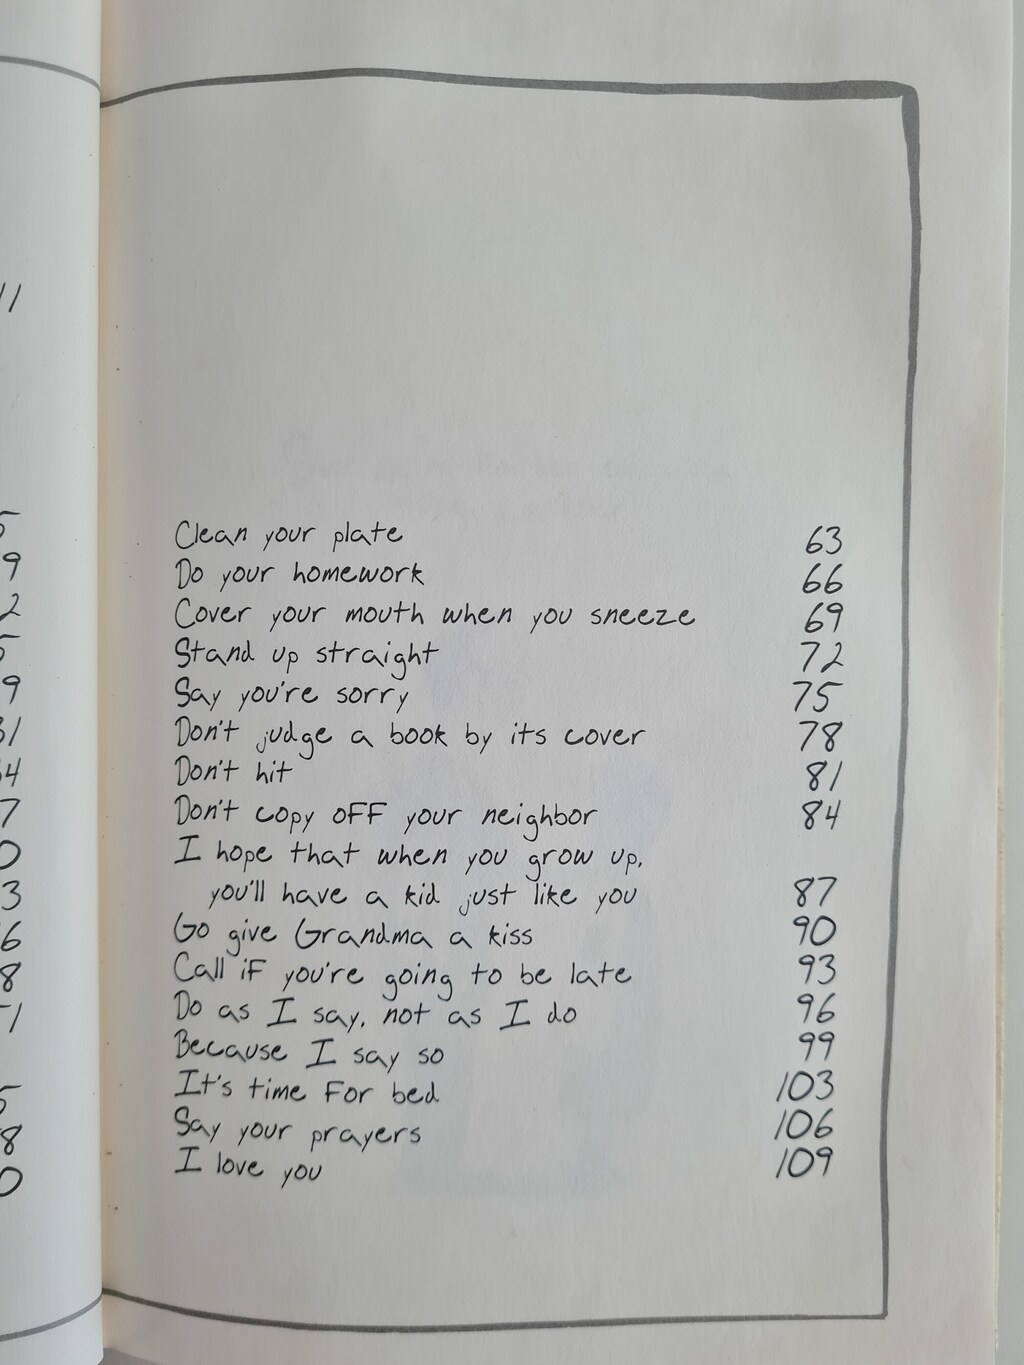 11
Clean your plate 63
Do your homework 66
Cover your mouth when you sneeze 69
Stand up straight 72
Say you're sorry 75
Don't judge a book by its cover 78
Don't hit 81
Don't copy off your neighbor 84
I hope that when you grow up,
you'll have a kid just like you 87
Go give Grandma a kiss 90
Call if you're going to be late 93
Do as I say, not as I do 96
Because I say so 99
It's time for bed 103
Say your prayers 106
I love you 109